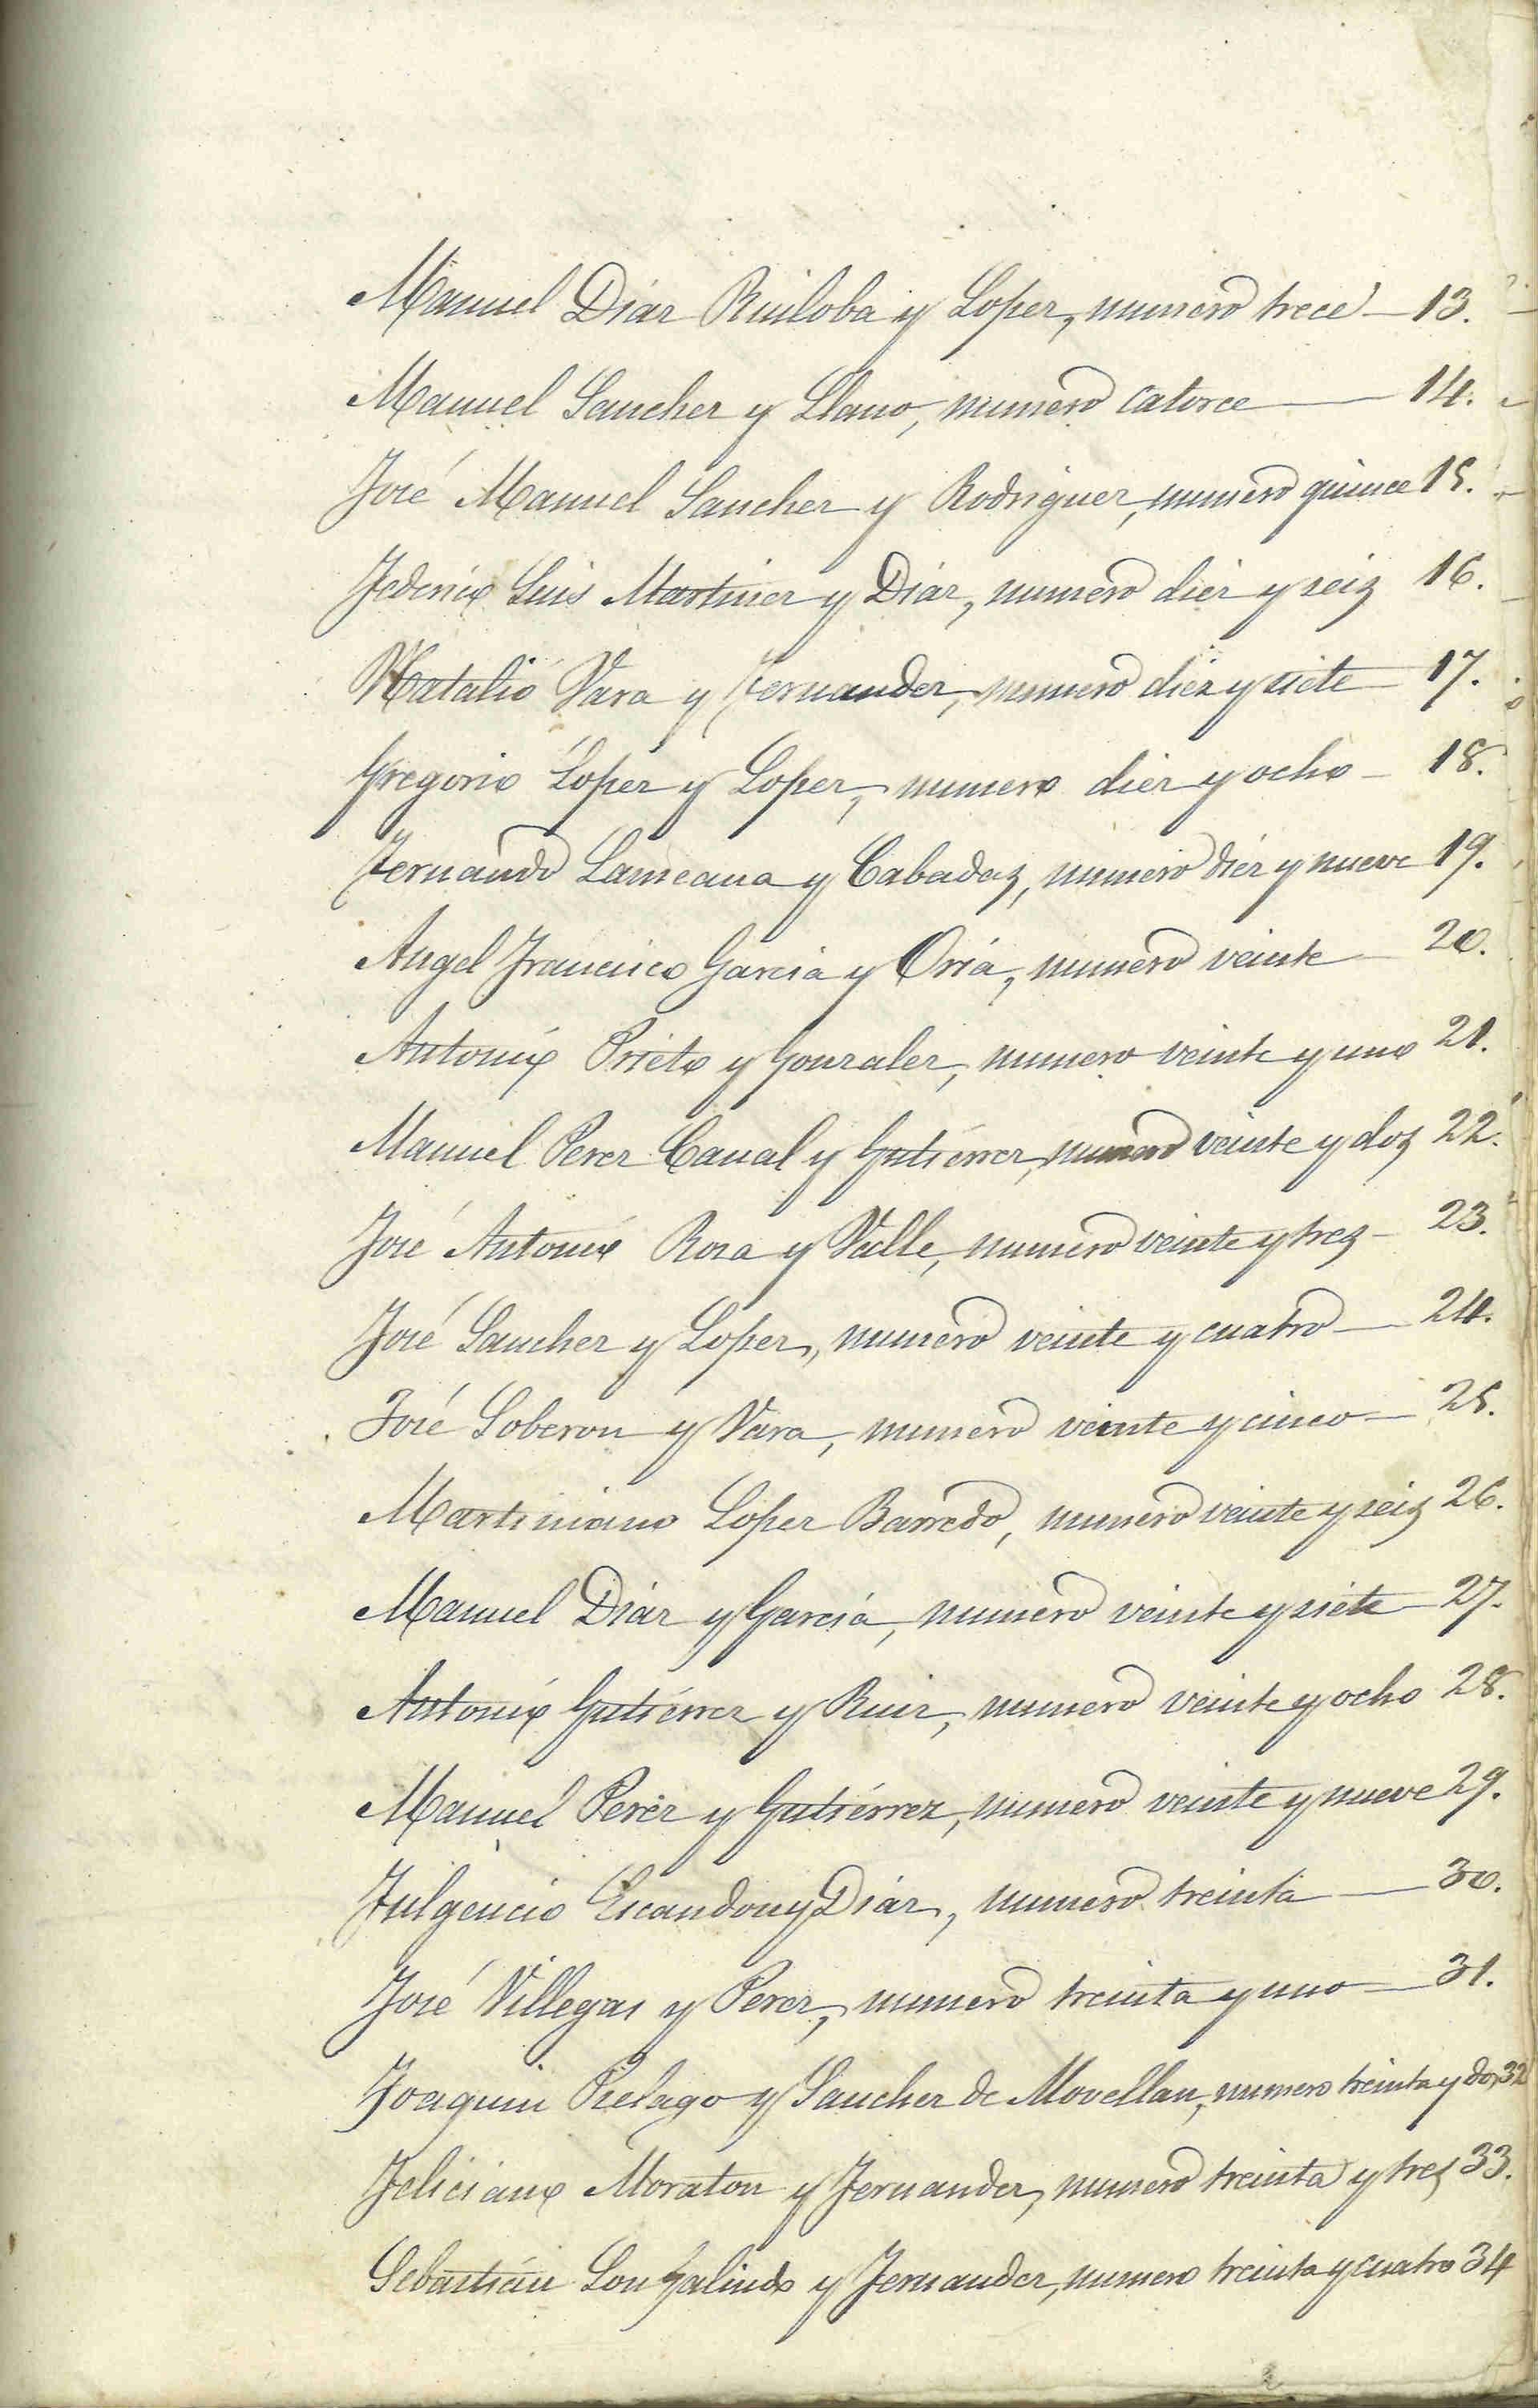 Manuel Diáz Ruiloba y Lopez, numero trece — 13.
Manuel Sanchez y Llano, numero catorce — 14.
José Manuel Sanchez y Rodriguez, numero quince 15.
Federico Luis Martinez y Diáz, numero diez y seis 16.
Natalio Vara y Fernandez, numero diez y siete — 17.
Gregorio Lopez y Lopez, numero diez y ocho — 18.
Fernando y Cabadas, numero diez y nueve 19.
Angel Francisco Garcia y Oria, numero veinte — 20.
Antonio Prieto y Gonzalez, numero veinte y uno 21.
Manuel Perez Canal y Gutiérrez, numero veinte y dos 22.
José Antonio Roza y Valle, numero veinte y tres — 23.
José Sanchez y Lopez, numero veinte y cuatro — 24.
José Soberon y Vara, numero veinte y cinco — 25.
Martiniano Lopez Barredo, numero veinte y seis 26.
Manuel Diáz y Garcia, numero veinte y siete — 27.
Antonio Gutiérrez y Ruiz, numero veinte y ocho 28.
Manuel Perez y Gutiérrez, numero veinte y nueve 29.
Fulgencio Escandon y Diáz, numero treinta — 30.
José Villegas y Perez, numero treinta y uno — 31.
Joaquin Pielago y Sanchez de Movellan, numero treinta y dos 32
Feliciano Moraton y Fernandez, numero treinta y tres 33.
Sebastián Son Galindo y Fernandez, numero treinta y cuatro 34